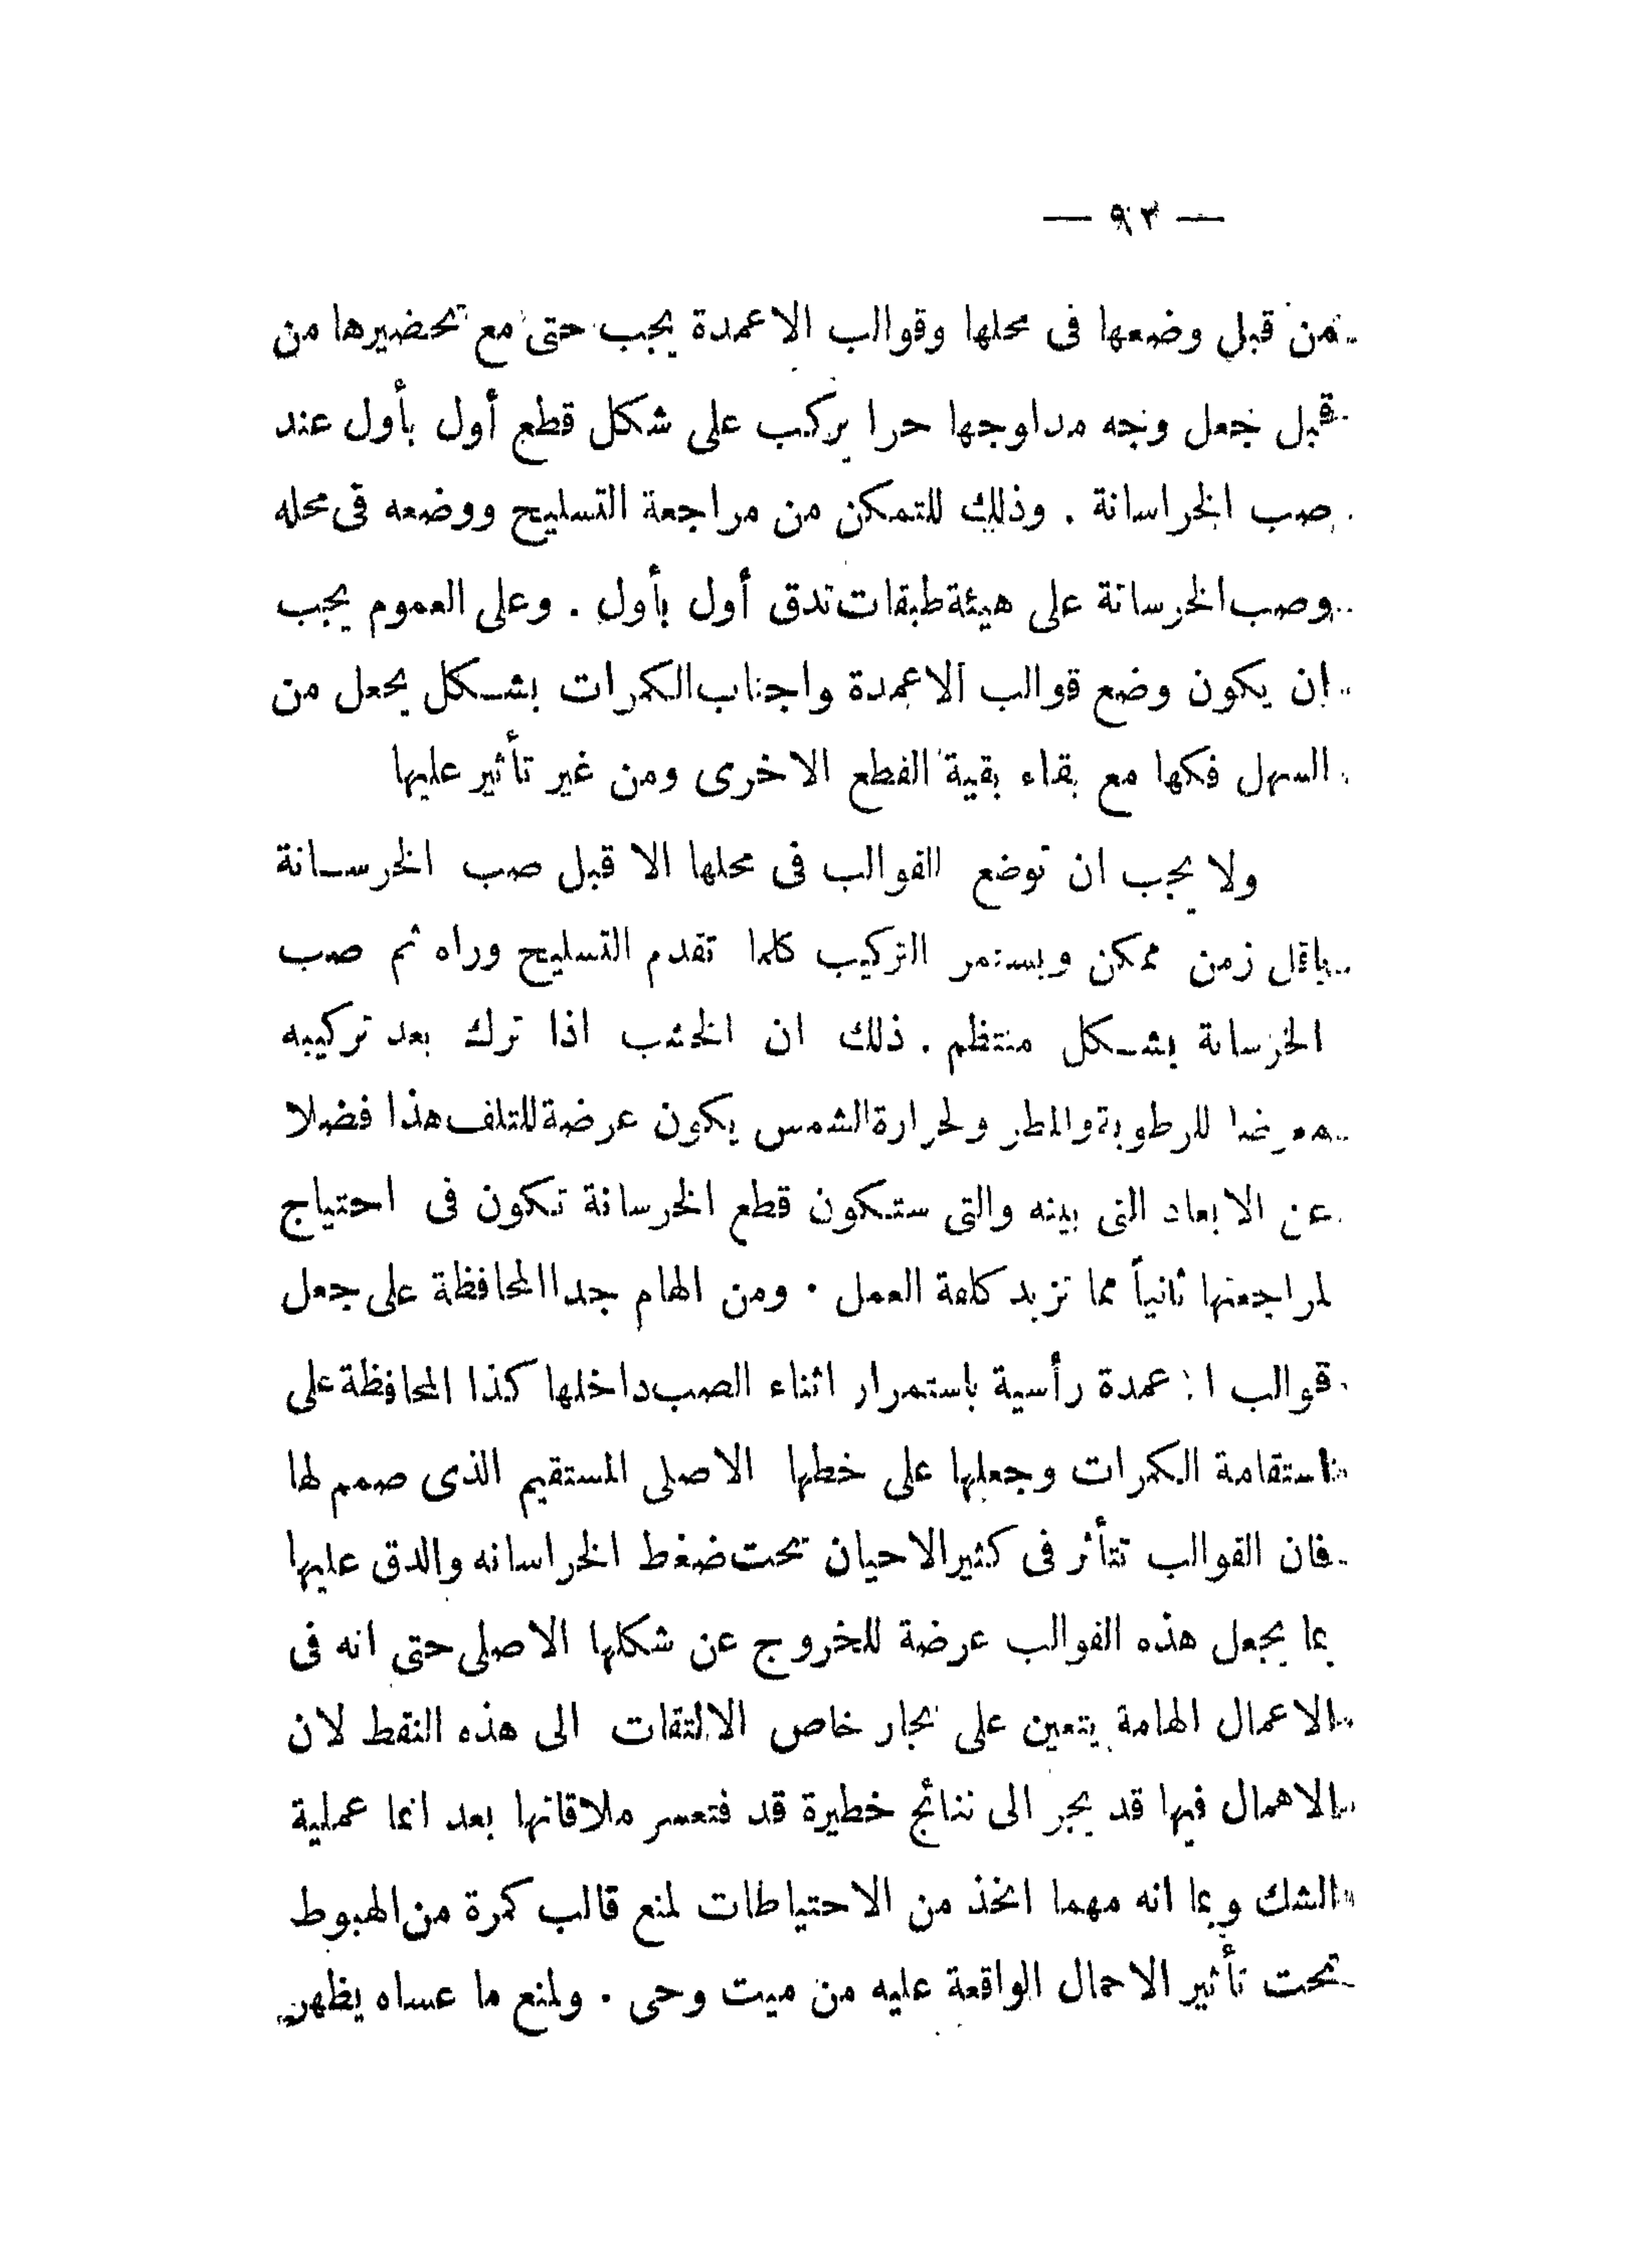 — ٩٣ —
من قبل وضعها فى محلها وقوالب الاعمدة يجب حتى مع تحضيرها من
قبل جعل وجه مداوجها حرا يركب على شكل قطع أول بأول عند
صب الخراسانة . وذلك للتمكن من مراجعة التسليح ووضعه فى محله
وصب الخرسانة على هيئة طبقات تدق أول بأول . وعلى العموم يجب
ان يكون وضع قوالب الاعمدة واجناب الكمرات بشكل يجعل من
السهل فكها مع بقاء بقية القطع الاخرى ومن غير تأثير عليها
ولا يجب ان توضع القوالب فى محلها الا قبل صب الخرسانة
باقل زمن ممكن ويستمر التركيب كلما تقدم التسليح وراه ثم صب
الخرسانة بشكل منتظم . ذلك ان الخشب اذا ترك بعد تركيبه
معرضا للرطوبة والمطر ولحرارة الشمس يكون عرضة للتلف هذا فضلا
عن الابعاد التى بينه والتى ستكون قطع الخرسانة تكون فى احتياج
لمراجعتها ثانياً مما تزيد كلفة العمل . ومن الهام جدا المحافظة على جعل
قوالب الاعمدة رأسية باستمرار اثناء الصب داخلها كذا المحافظة على
استقامة الكمرات وجعلها على خطها الاصلى المستقيم الذى صمم لها
فان القوالب تتأثر فى كثير الاحيان تحت ضغط الخراسانه والدق عليها
بما يجعل هذه القوالب عرضة للخروج عن شكلها الاصلى حتى انه فى
الاعمال الهامة يتعين على نجار خاص الالتقات الى هذه النقط لان
الاهمال فيها قد يجر الى نتائج خطيرة قد فتعسر ملاقاتها بعد انما عملية
الشك وبما انه مهما اتخذ من الاحتياطات لمنع قالب كمرة من الهبوط
تحت تأثير الاحمال الواقعة عليه من ميت وحى . ولمنع ما عساه يظهر